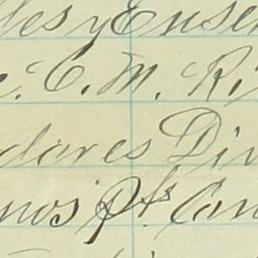 les y Ense
C. M. R.
dores Div
nos Pts Can